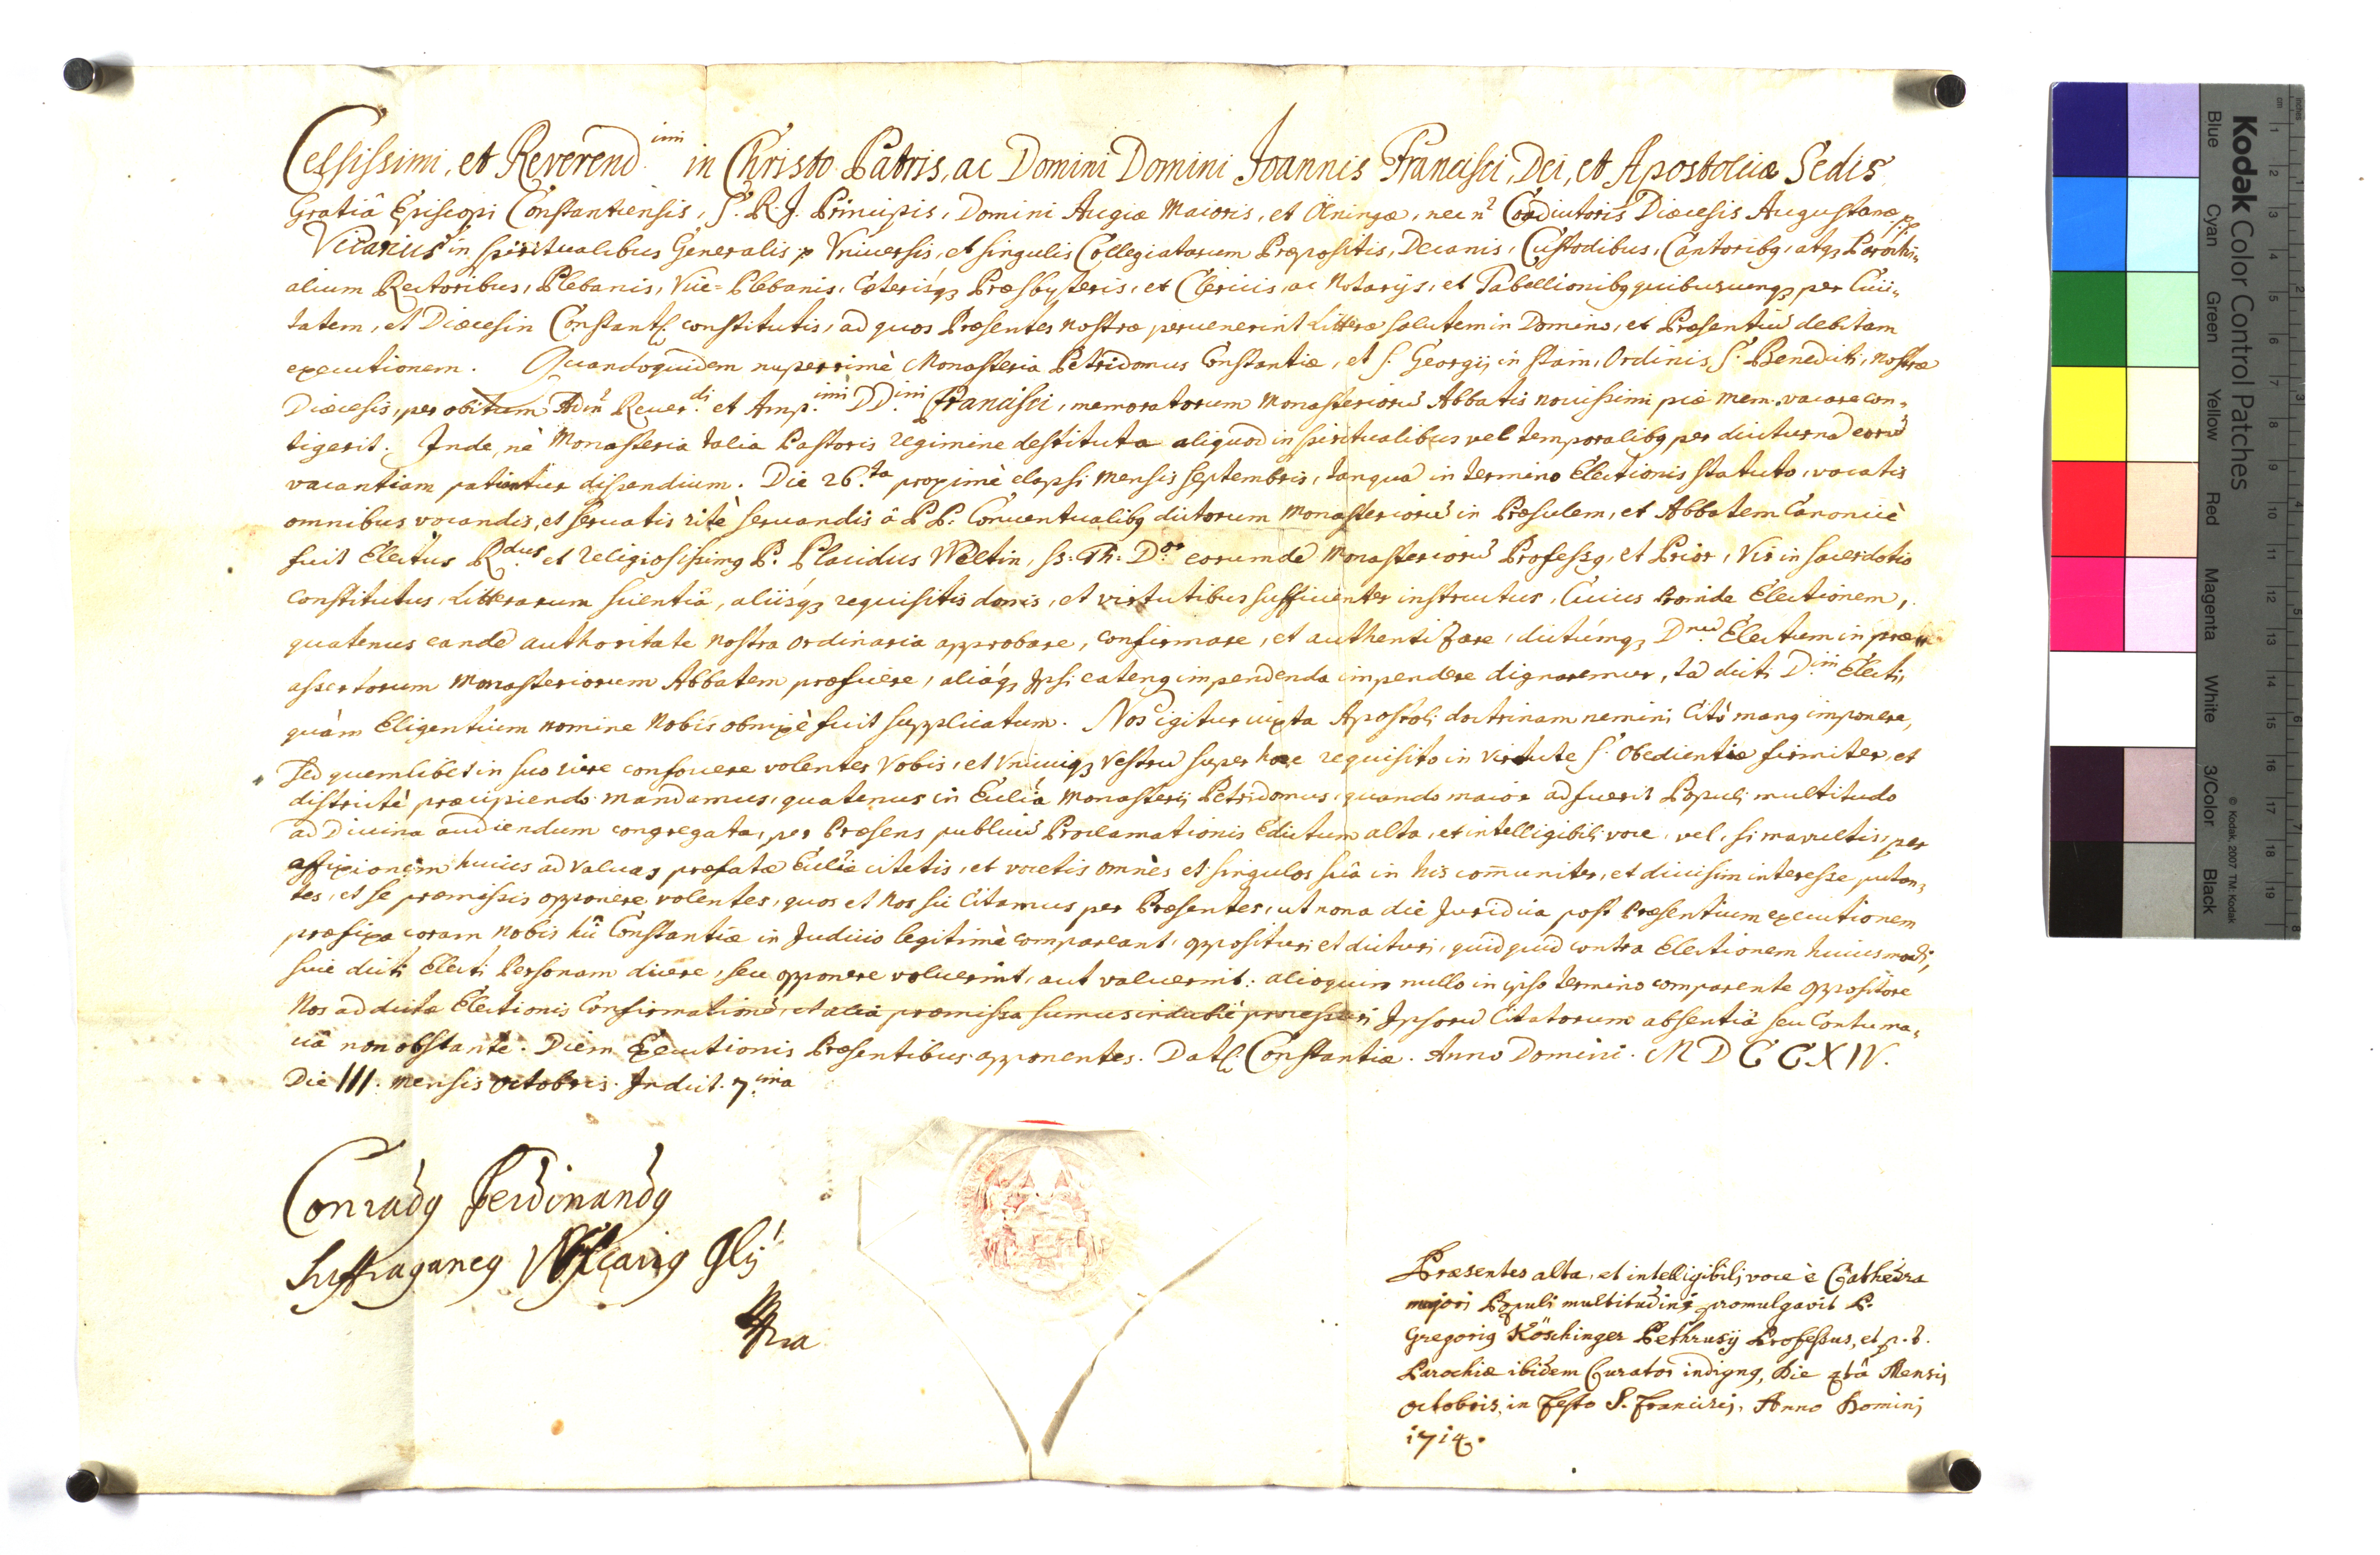 Celsissimi, et Reverend.imi in Christo Patris, ac Domini Domini Joannis Francisci, Dei, et Apostolicæ Sedis
Gratiâ Episcopi Constantiensis, S. R. J. Principis, Domini Augiæ Maioris, et Öningæ, nec n̄ Coadiutoris Diœcesis Augustanæ pp.
Vicarius in spiritualibus Generalis p Vniuersis, et singulis Collegiatarum Præpositis, Decanis, Custodibus, Cantoribq, atq3 Parochi„
alium Rectoribus, Plebanis, Vice=Plebanis, Cæterisq3 Præsbyteris, et Clericis, ac Notarijs, et Tabellionibq quibuscunq3 per Ciui„
tatem, et Diœcesin Constants. constitutis, ad quos Præsentes nostræ peruenerint Litteræ salutem in Domino, et Præsentiū debitam
executionem. Quandoquidem nuperrimè Monasteria Petridomus Constantiæ, et S. Georgij in Stain, Ordinis S. Benedicti, nostræ
Diœcesis, per obitum Adm̄ Reuer.di et Amp.imi DD.imi Francisci, memoratorum Monasteriorū Abbatis nouissimi piæ mem. vacare con„
tigerit. Inde, nè Monasteria talia Pastoris regimine destituta aliquod in spiritualibus vel temporalibq per diuturnā eorū
vacantiam patiantur dispendium. Die 26.ta proximè elapsi mensis septembris, tanquā in termino Electionis statuto, vocatis
omnibus vocandis, et seruatis ritè seruandis â P P. Conuentualibq dictorum Monasteriorū in Præsulem, et Abbatem Canonicè
fuit Electus R.dus et religiosissimq P. Placidus Weltin, ss. Th. D.or eorumdē Monasteriorū Professq, et Prior, Vir in sacerdotio
constitutus, Litterarum scientiâ, aliisq3 requisitis donis, et virtutibus sufficienter instructus, Cuius proinde Electionem,
quatenus eandē authoritate nostra ordinaria approbare, confirmare, et authentizare, dictúmq3 Dnū Electum in præ„
assertorum Monasteriorum Abbatem præficere, aliáq3 Jpsi eatenq impendenda impendere dignaremur, tā dicti D.ini Electi,
quàm Eligentium nomine Nobis obnixè fuit supplicatum. Nos igitur iuxta Apostoli doctrinam nemini citò manq imponere,
sed quemlibet in suo iure confouere volentes vobis, et vnicuiq3 vestrū super hoc requisito in virtute S. Obedientiæ firmiter, et
districtè præcipiendo mandamus, quatenus in Eccliâ Monasterij Petridomus, quando maior adfuerit Populi multitudo
ad Diuina audiendum congregata, per Præsens publicū Proclamationis Edictum alta, et intelligibili voce, vel, si mauultis, per
affixionem huius ad valuas præfatæ Ecclîæ citetis, et vocetis omnes et singulos suâ in his com̄uniter, et diuisim interesse putan„
tes, et se præmissis opponere volentes, quos et Nos sic Citamus per Præsentes, ut nona die Juridica post Præsentium executionem
præfixa coram Nobis hîc Constantiæ in Judicio legitimè compareant, opposituri et dicturi, quidquid contra Electionem huiusmodi,
siue dicti Electi Personam dicere, seu opponere voluerint, aut valuerint: alioquin nullo in ipso termino comparente oppositore
Nos ad dictæ Electionis Confirmationē, et alia præmissa sumus indubiè processuri Jpsorū Citatorum absentiâ seu Contuma„
ciâ non obstante. Diem Executionis Præsentibus apponentes. Dats. Constantiæ. Anno Domini. M D C C X IV.
Die III. mensis octobris. Indict. 7.ima
Conradq Ferdinandq
Suffraganeq Vicariq Glis
mpria
Præsentes alta, et intelligibili voce è Cathedra
majori Populi multitudini promulgavit P.
Gregoriq Köschinger Pethrusij Professus, et p. t.
Parochiæ ibidem Curator indignq, Die 4tâ Mensis
octobris, in festo S. Francisci, Anno Domini
1714.
Kodak Color Control Patches
Blue Cyan Green Yellow Red Magenta White 3/Color Black
© Kodak, 2007 TM: Kodak
cm 1 2 3 4 5 6 7 8 9 10 11 12 13 14 15 16 17 18 19
inches 1 2 3 4 5 6 7 8